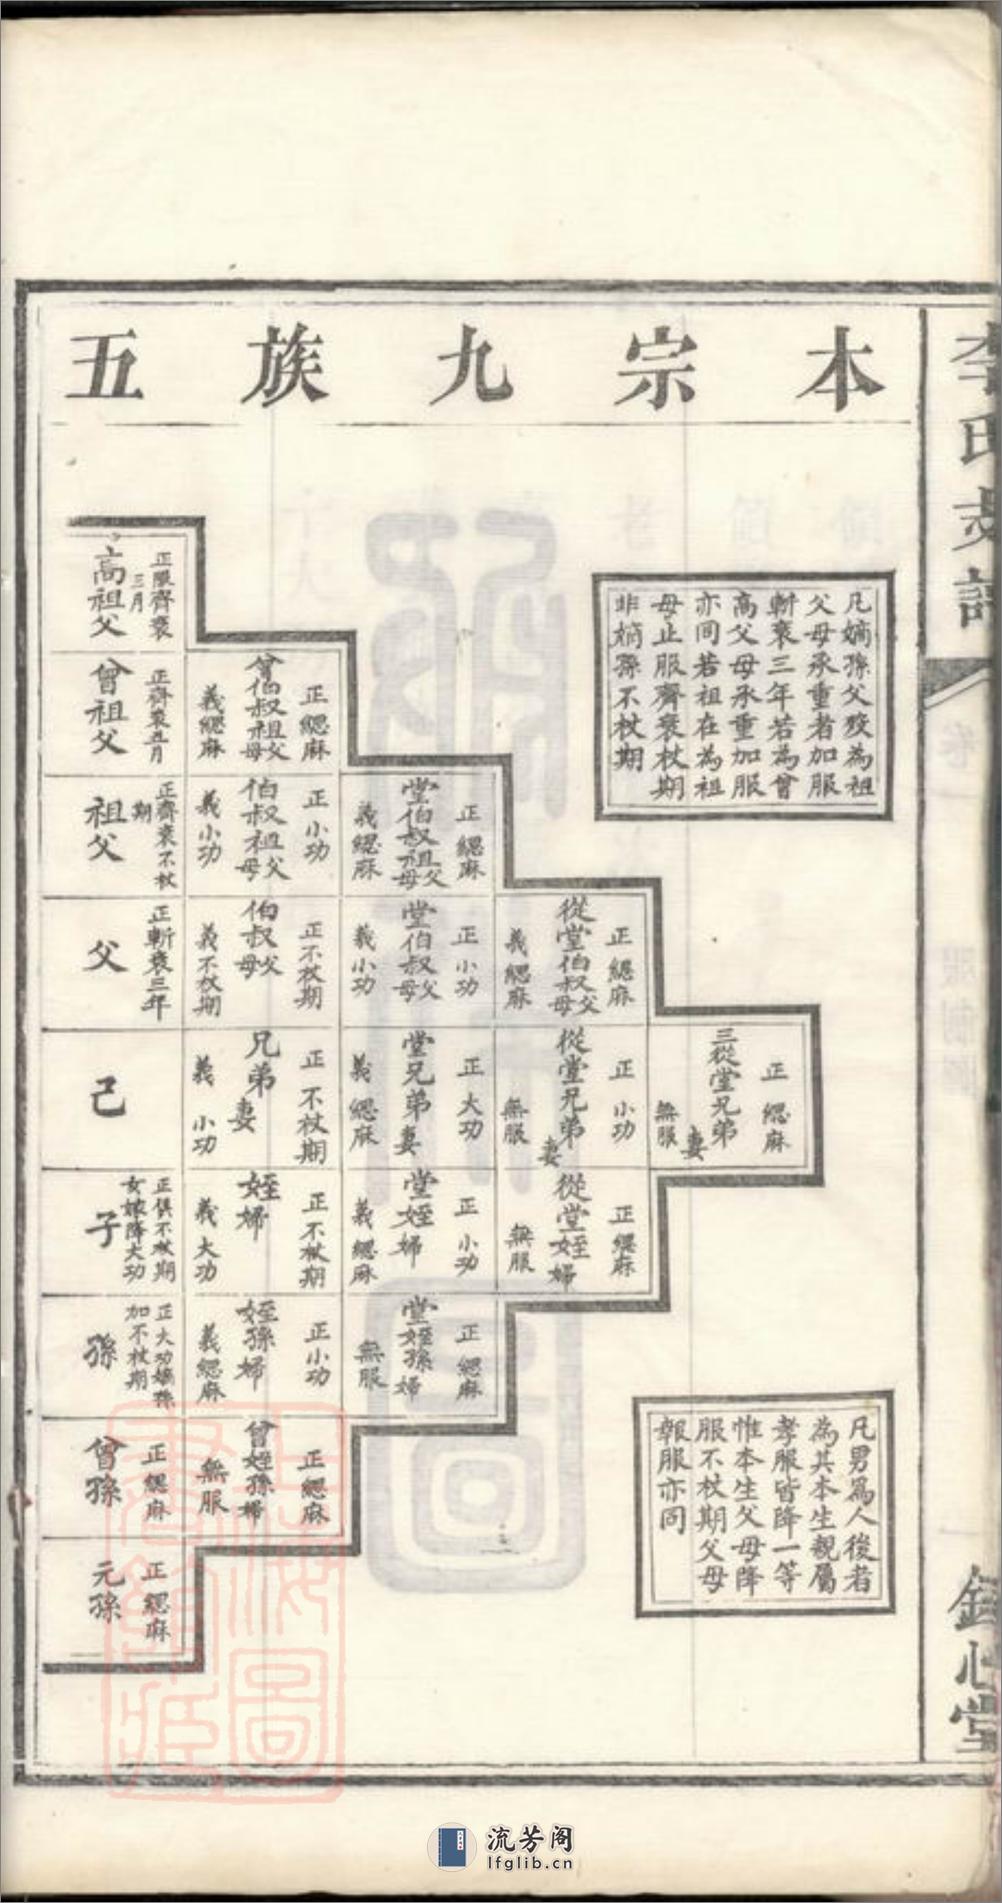 本宗九族五
凡嫡孫父歿為祖
父母承重者加服
斬衰三年若為曾
高父母承重加服
亦同若祖在為祖
母止服齊衰杖期
非嫡孫不杖期
凡男為人後者
為其本生親屬
孝服皆降一等
惟本生父母降
服不杖期父母
報服亦同
正服齊衰三月
高祖父
正緦麻
曾伯叔祖父母
義緦麻
正齊衰五月
曾祖父
正緦麻
堂伯叔祖父母
義緦麻
正小功
伯叔祖父母
義小功
正齊衰不杖期
祖父
正緦麻
從堂伯叔父母
義緦麻
正小功
堂伯叔父母
義小功
正不杖期
伯叔父母
義不杖期
正斬衰三年
父
正緦麻
三從堂兄弟妻
無服
正小功
從堂兄弟妻
無服
正大功
堂兄弟妻
義緦麻
正不杖期
兄弟妻
義小功
己
正緦麻
從堂姪婦
無服
正小功
堂姪婦
義緦麻
正不杖期
姪婦
義大功
正俱不杖期
女嫁降大功
子
正緦麻
堂姪孫婦
無服
正小功
姪孫婦
義緦麻
正大功嫡孫
加不杖期
孫
正緦麻
曾姪孫婦
無服
正緦麻
曾孫
正緦麻
元孫
李氏
卷一
服制圖
心堂
流芳阁
lfglib.cn